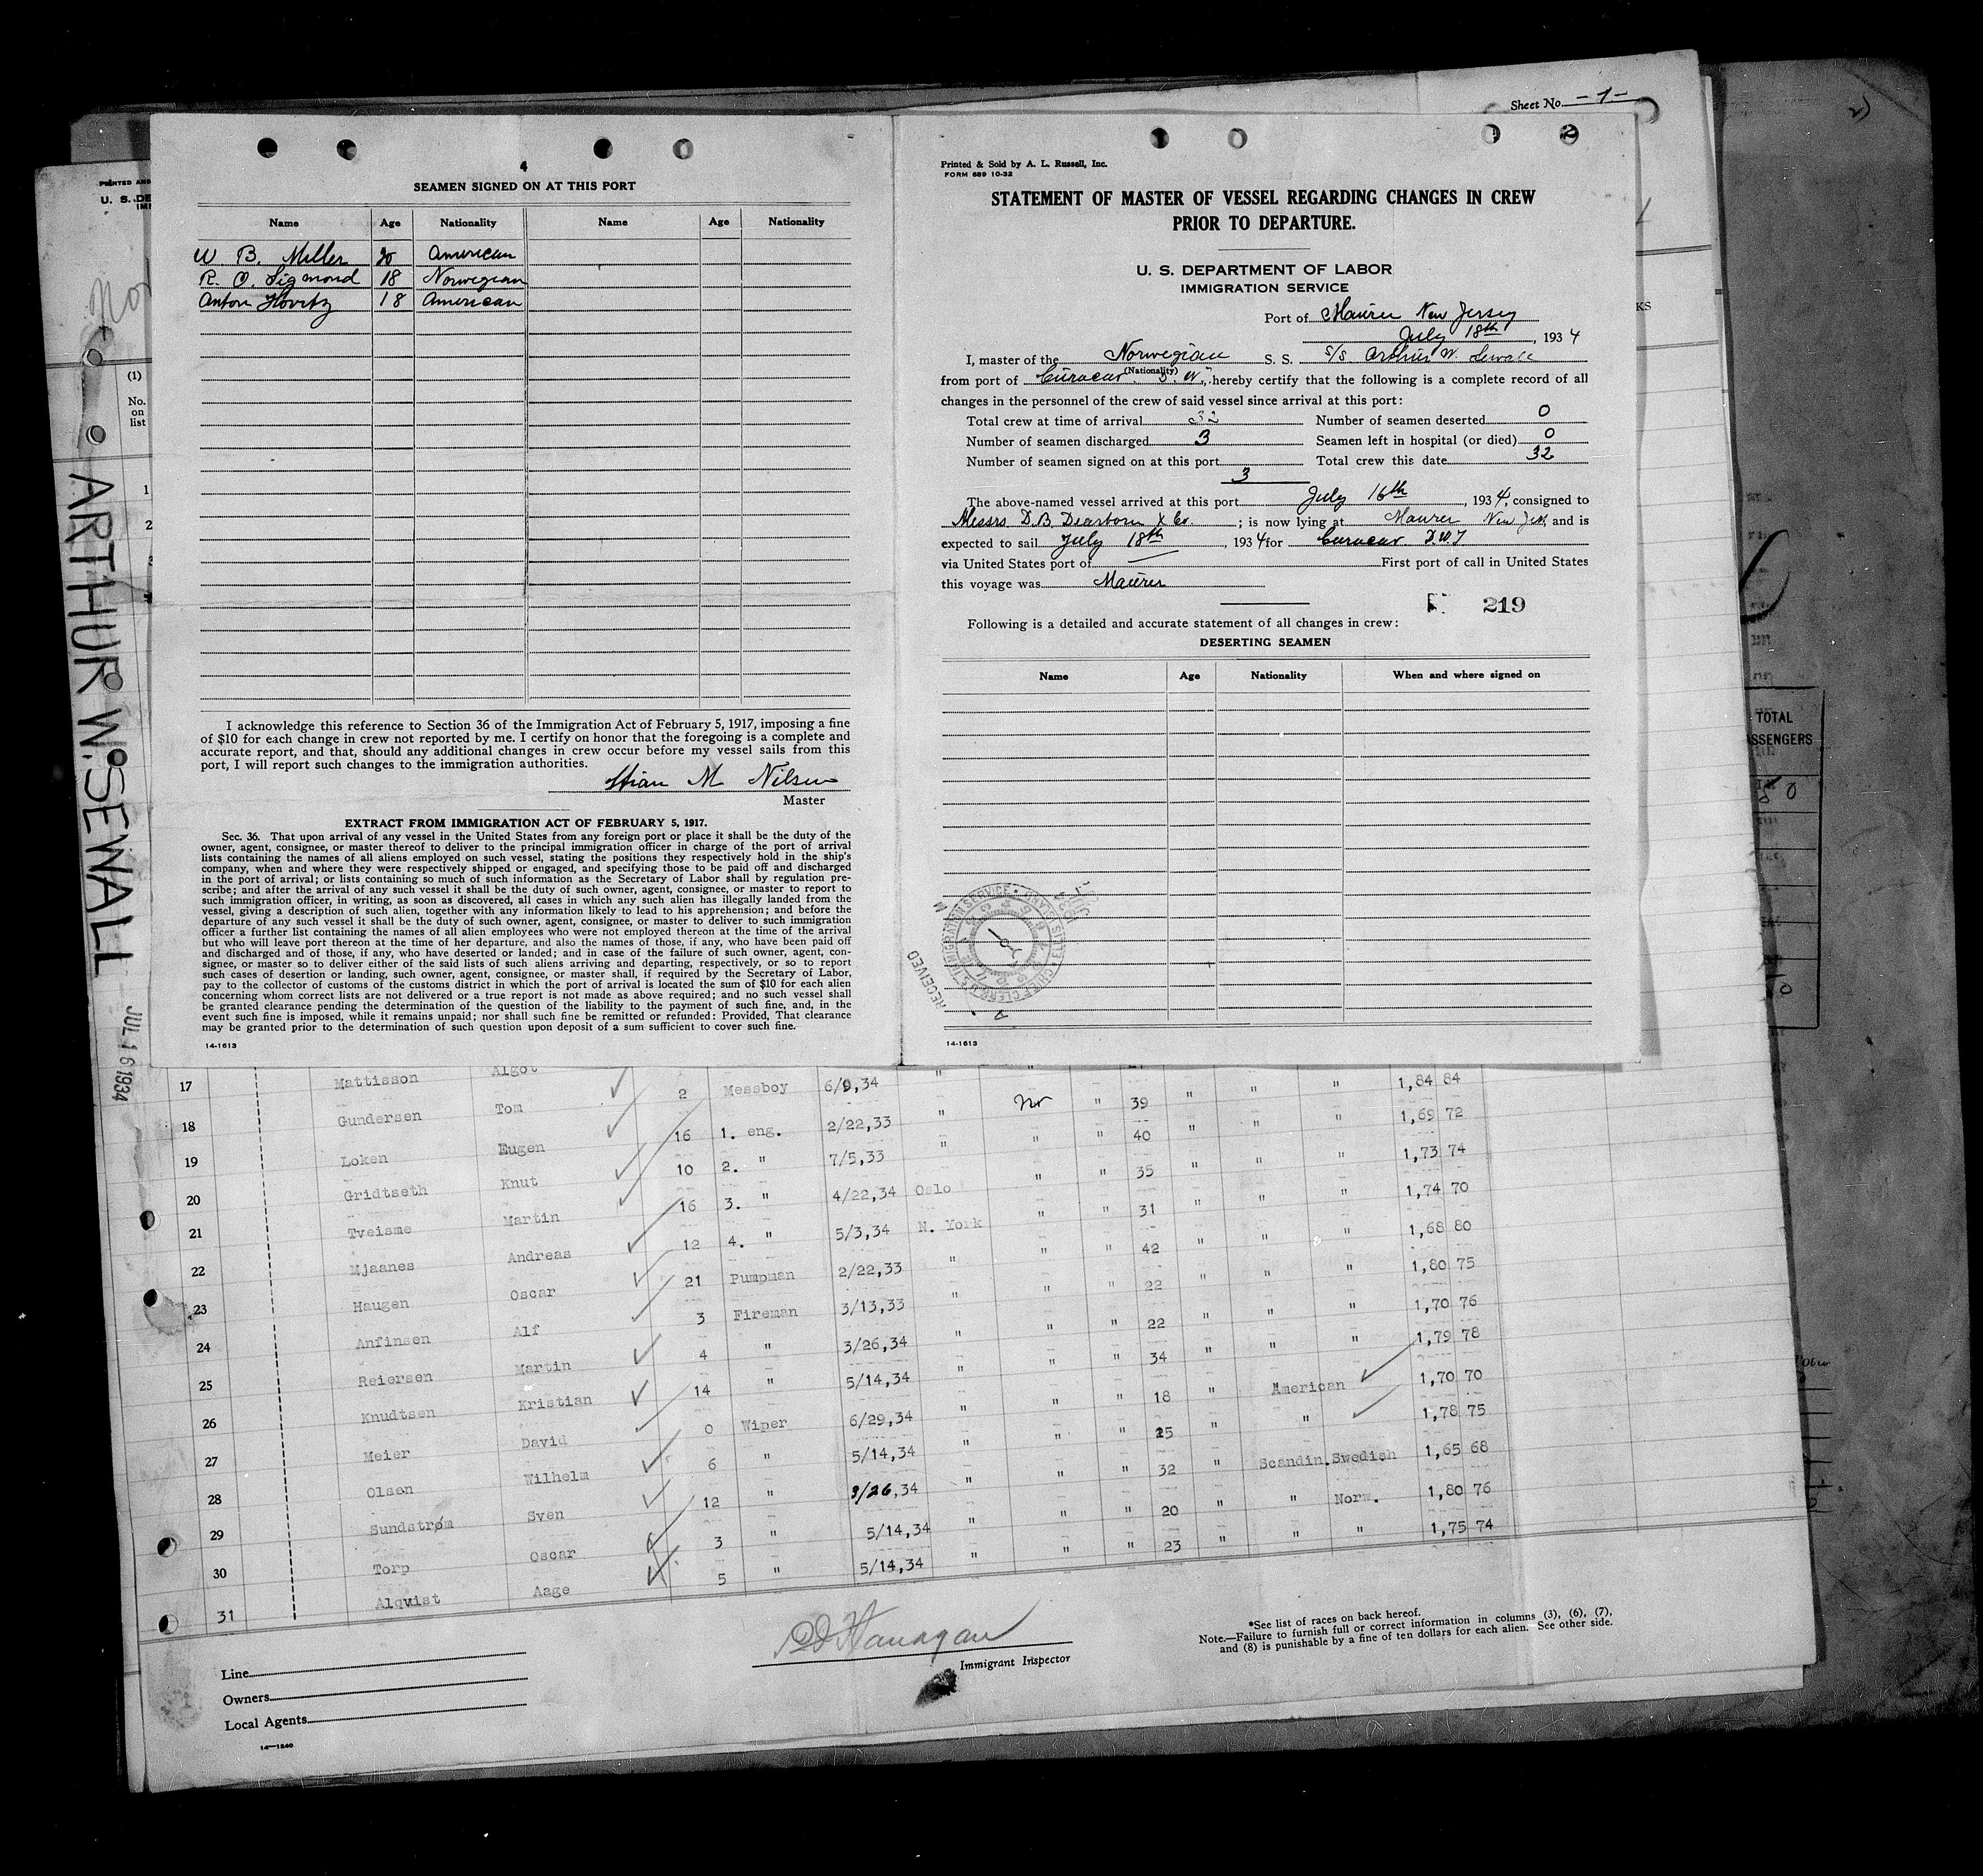 4
SEAMEN SIGNED ON AT THIS PORT
Name Age Nationality Name Age Nationality
W B. Miller 20 American
R. O. Sigmond 18 Norwegian
Anton Hovitz 18 American
I acknowledge this reference to Section 36 of the Immigration Act of February 5, 1917, imposing a fine
of $10 for each change in crew not reported by me. I certify on honor that the foregoing is a complete and
accurate report, and that, should any additional changes in crew occur before my vessel sails from this
port, I will report such changes to the immigration authorities.
Stian M Nilsen
Master
EXTRACT FROM IMMIGRATION ACT OF FEBRUARY 5, 1917.
Sec. 36. That upon arrival of any vessel in the United States from any foreign port or place it shall be the duty of the
owner, agent, consignee, or master thereof to deliver to the principal immigration officer in charge of the port of arrival
lists containing the names of all aliens employed on such vessel, stating the positions they respectively hold in the ship's
company, when and where they were respectively shipped or engaged, and specifying those to be paid off and discharged
in the port of arrival; or lists containing so much of such information as the Secretary of Labor shall by regulation pre-
scribe; and after the arrival of any such vessel it shall be the duty of such owner, agent, consignee, or master to report to
such immigration officer, in writing, as soon as discovered, all cases in which any such alien has illegally landed from the
vessel, giving a description of such alien, together with any information likely to lead to his apprehension; and before the
departure of any such vessel it shall be the duty of such owner, agent, consignee, or master to deliver to such immigration
officer a further list containing the names of all alien employees who were not employed thereon at the time of the arrival
but who will leave port thereon at the time of her departure, and also the names of those, if any, who have been paid off
and discharged and of those, if any, who have deserted or landed; and in case of the failure of such owner, agent, con-
signee, or master so to deliver either of the said lists of such aliens arriving and departing, respectively, or so to report
such cases of desertion or landing, such owner, agent, consignee, or master shall, if required by the Secretary of Labor,
pay to the collector of customs of the customs district in which the port of arrival is located the sum of $10 for each alien
concerning whom correct lists are not delivered or a true report is not made as above required; and no such vessel shall
be granted clearance pending the determination of the question of the liability to the payment of such fine, and, in the
event such fine is imposed, while it remains unpaid; nor shall such fine be remitted or refunded: Provided, That clearance
may be granted prior to the determination of such question upon deposit of a sum sufficient to cover such fine.
14-1613
Sheet No. -1-
2
Printed & Sold by A. L. Russell, Inc.
FORM 689 10-32
STATEMENT OF MASTER OF VESSEL REGARDING CHANGES IN CREW
PRIOR TO DEPARTURE.
U. S. DEPARTMENT OF LABOR
IMMIGRATION SERVICE
Port of Maurer New Jersey
July 18th, 1934
I, master of the Norwegian S. S. s/s Arthur W. Sewall
(Nationality)
from port of Curacao D. W. I., hereby certify that the following is a complete record of all
changes in the personnel of the crew of said vessel since arrival at this port:
Total crew at time of arrival 32 Number of seamen deserted 0
Number of seamen discharged 3 Seamen left in hospital (or died) 0
Number of seamen signed on at this port 3 Total crew this date 32
The above-named vessel arrived at this port July 16th, 1934, consigned to
Messrs D. B. Dearborn & Co. ; is now lying at Maurer New Jers and is
expected to sail July 18th, 1934 for Curacao D.W.I
via United States port of — First port of call in United States
this voyage was Maurer
219
Following is a detailed and accurate statement of all changes in crew:
DESERTING SEAMEN
Name Age Nationality When and where signed on
RECEIVED
CHIEF CLERK U.S. IMMIGRATION SERVICE ELLIS ISLAND
14-1613
PRINTED AND
U. S. DE
(1)
No.
on
list
1
2
3
ARTHUR W. SEWALL
JUL 16 1934
KS
TOTAL
SSENGERS
17 Mattisson Algot 2 Messboy 6/9,34 " " 1,84 84
18 Gundersen Tom 16 1. eng. 2/22,33 " nr " 39 " " " 1,69 72
19 Loken Eugen 10 2. " 7/5,33 " " " 40 " " " 1,73 74
20 Gridtseth Knut 16 3. " 4/22,34 Oslo " " 35 " " " 1,74 70
21 Tveisme Martin 12 4. " 5/3,34 N. York " " 31 " " " 1,68 80
22 Mjaanes Andreas 21 Pumpman 2/22,33 " " " 42 " " " 1,80 75
23 Haugen Oscar 3 Fireman 3/13,33 " " " 22 " " " 1,70 76
24 Anfinsen Alf 4 " 3/26,34 " " " 22 " " " 1,79 78
25 Reiersen Martin 14 " 5/14,34 " " " 34 " " " 1,70 70
26 Knudtsen Kristian 0 Wiper 6/29,34 " " " 18 " American 1,78 75
27 Meier David 6 " 5/14,34 " " " 25 " " 1,65 68
28 Olsen Wilhelm 12 " 3/26,34 " " " 32 " Scandin. Swedish 1,80 76
29 Sundstrøm Sven 3 " 5/14,34 " " " 20 " " Norw. 1,75 74
30 Torp Oscar 5 " 5/14,34 " " " 23 " " "
31 Alqvist Aage
Immigrant Inspector
*See list of races on back hereof.
Note.—Failure to furnish full or correct information in columns (3), (6), (7),
and (8) is punishable by a fine of ten dollars for each alien. See other side.
Line
Owners
Local Agents
14—1240